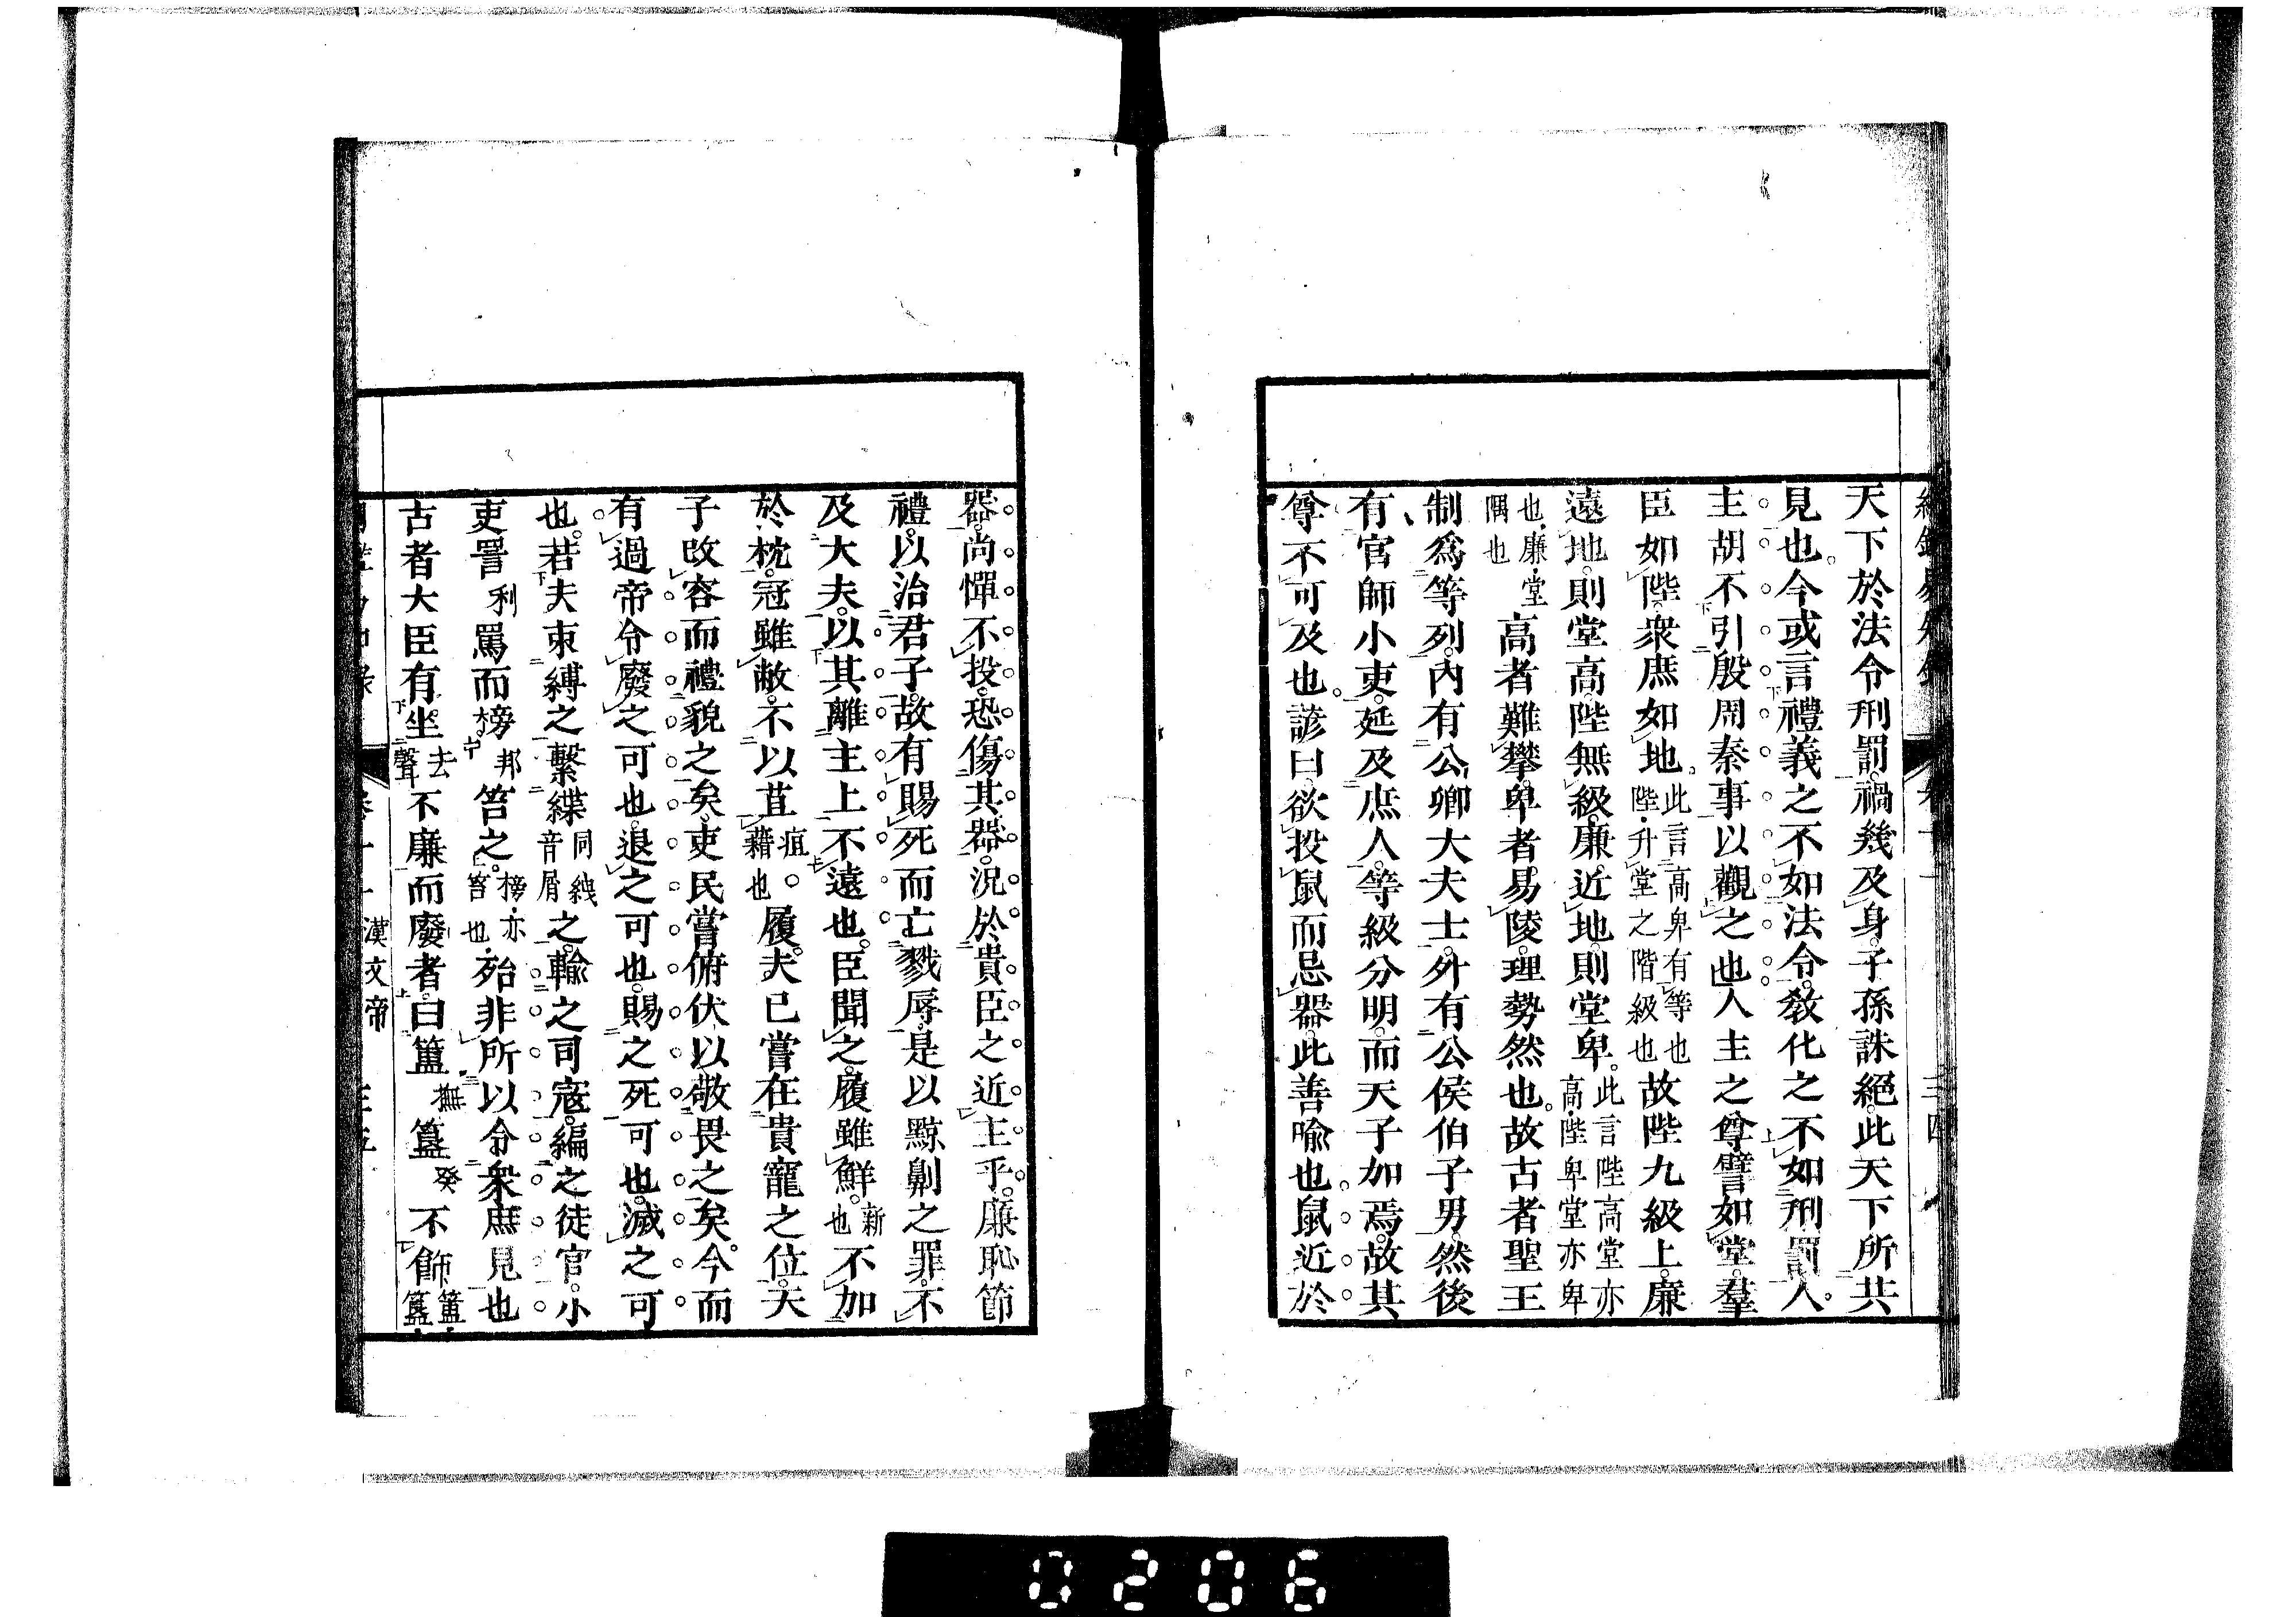 天下於法令刑罰禍幾及身子孫誅絕此天下所共
見也今或言禮義之不如法令教化之不如刑罰人
主胡不引殷周秦事以觀之也人主之尊譬如堂羣
臣如陛衆庶如地此言高卑有等也陛升堂之階級也故陛九級上廉
遠地則堂高陛無級廉近地則堂卑此言陛高堂亦高陛卑堂亦卑
也廉堂隅也高者難攀卑者易陵理勢然也故古者聖王
制爲等列內有公卿大夫士外有公侯伯子男然後
有官師小吏延及庶人等級分明而天子加焉故其
尊不可及也諺曰欲投鼠而忌器此善喩也鼠近於
器尚憚不投恐傷其器況於貴臣之近主乎廉恥節
禮以治君子故有賜死而亡戮辱是以黥劓之罪不
及大夫以其離主上不遠也臣聞之履雖鮮新也不加
於枕冠雖敝不以苴疽藉也履夫已嘗在貴寵之位天
子改容而禮貌之矣吏民嘗俯伏以敬畏之矣今而
有過帝令廢之可也退之可也賜之死可也滅之可
也若夫束縛之繫緤同紲音屑之輸之司寇編之徒官小
吏詈利罵而榜邦笞之榜亦笞也殆非所以令衆庶見也
古者大臣有坐去聲不廉而廢者曰簠撫簋癸不飾簠簋
漢文帝